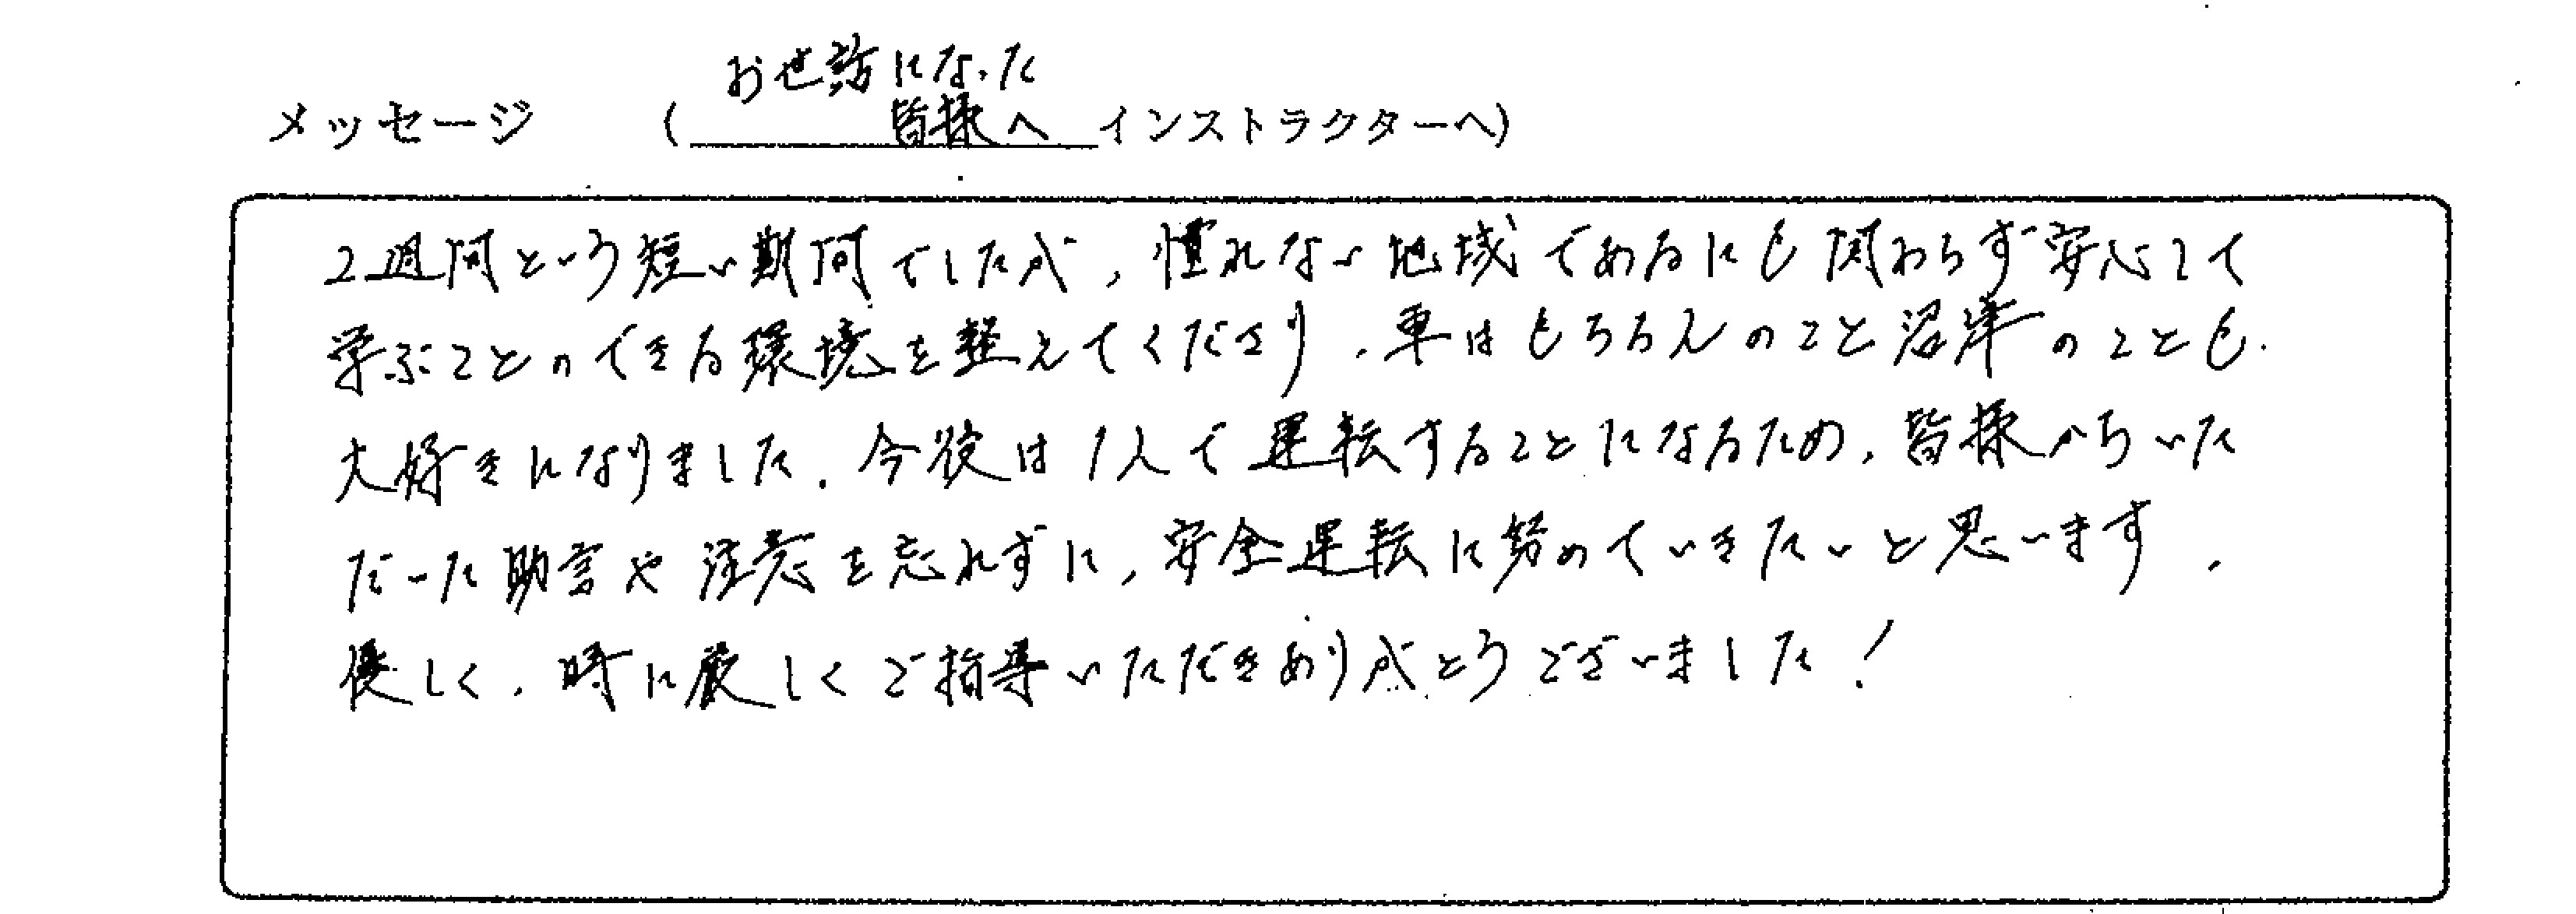 お世話になった
メッセージ （皆様へ インストラクターへ）
2週間という短い期間でしたが、慣れない地域であるにも関わらず安心して
学ぶことのできる環境を整えてくださり、車はもちろんのこと沼津のことも
大好きになりました。今後は1人で運転することになるため、皆様からいた
だいた助言や注意を忘れずに、安全運転に努めていきたいと思います。
優しく、時に厳しくご指導いただきありがとうございました！